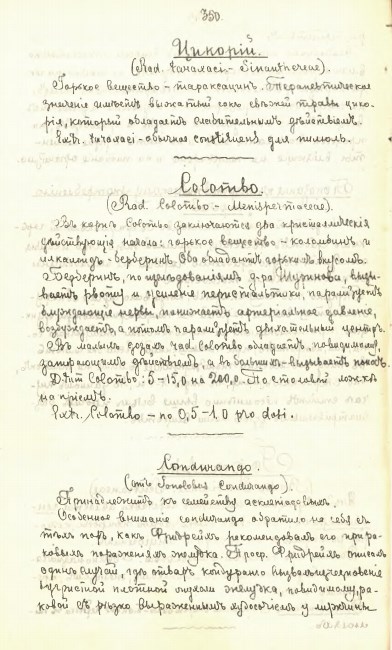 350.
Цикорій.
(Rad. taraxaci - Sinanthereae).
Горькое вещество - тараксацинъ. Терапевтическое
значеніе имѣетъ выжатый сокъ свѣжей травы цико-
рія, который обладаетъ слабительнымъ дѣйствіемъ.
Extr. taraxaci - обычное constituens для пилюль.
Colombo.
(Rad. Colombo - Menispermaceae).
Въ корнѣ Colombo заключаются два кристаллическія
дѣйствующія начала: горькое вещество - коломбинъ и
алкалоидъ - берберинъ. Оба обладаютъ горькимъ вкусомъ.
Берберинъ, по изслѣдованіямъ д-ра Шуринова, вызы-
ваетъ рвоту и усиленіе перистальтики, парализуетъ
блуждающіе нервы, понижаетъ артеріальное давленіе,
возбуждаетъ, а потомъ парализуетъ дыхательный центръ.
Въ малыхъ дозахъ rad. Colombo обладаетъ, повидимому,
запирающимъ дѣйствіемъ, а въ большихъ - вызываетъ поносъ.
D-cum Colombo: 5-15,0 на 200,0. По столовой ложкѣ
на пріемъ.
Extr. Colombo - по 0,5-1,0 pro dosi.
Condurango.
(Gonolobus Condurango).
Принадлежитъ къ семейству асклепіадовыхъ.
Особенное вниманіе condurango обратило на себя съ
тѣхъ поръ, какъ Фридрейхъ рекомендовалъ его при ра-
ковыхъ пораженіяхъ желудка. Проф. Фридрейхъ описалъ
одинъ случай, гдѣ отваръ кондуранго вызвалъ исчезновеніе
бугристой плотной опухоли желудка, повидимому, ра-
ковой съ рѣзко выраженнымъ худосочіемъ у мужчины